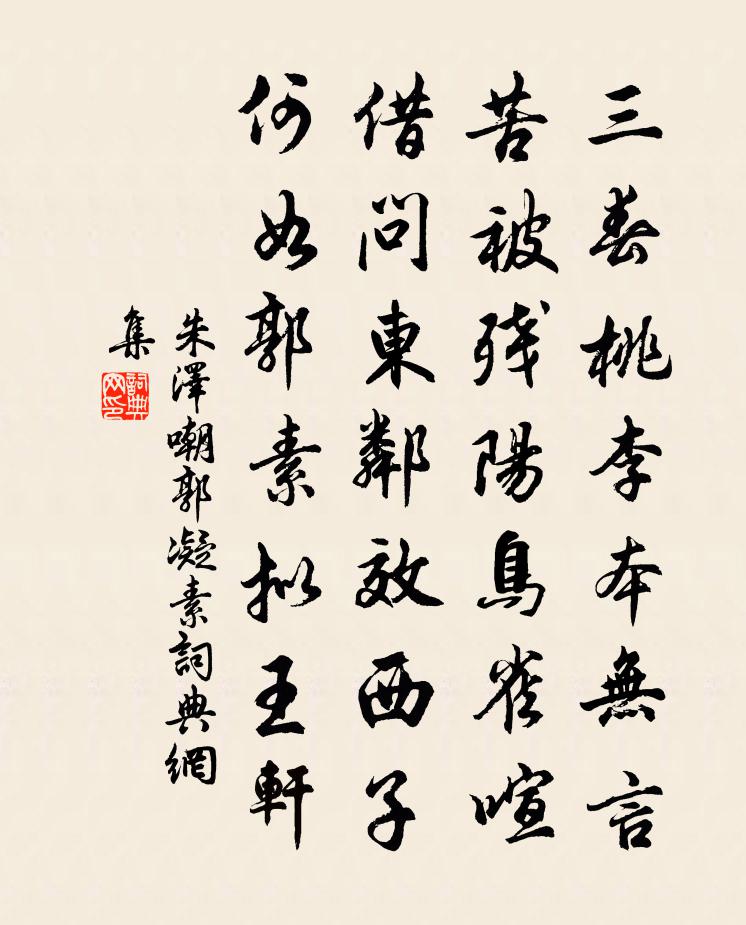 三春桃李本無言
苦被殘陽鳥雀喧
借問東鄰效西子
何如郭素拟王軒
朱澤嘲郭凝素詞典網
集
詞典
网印